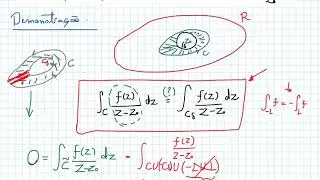 Demonstração.
R
C
z₀
C
∫_C f(z)/(z-z₀) dz (?)= ∫_{Cδ} f(z)/(z-z₀) dz
∫_{-L} f = -∫_L f
O = ∫_{C̃} f(z)/(z-z₀) dz = ∫ f(z)/(z-z₀)